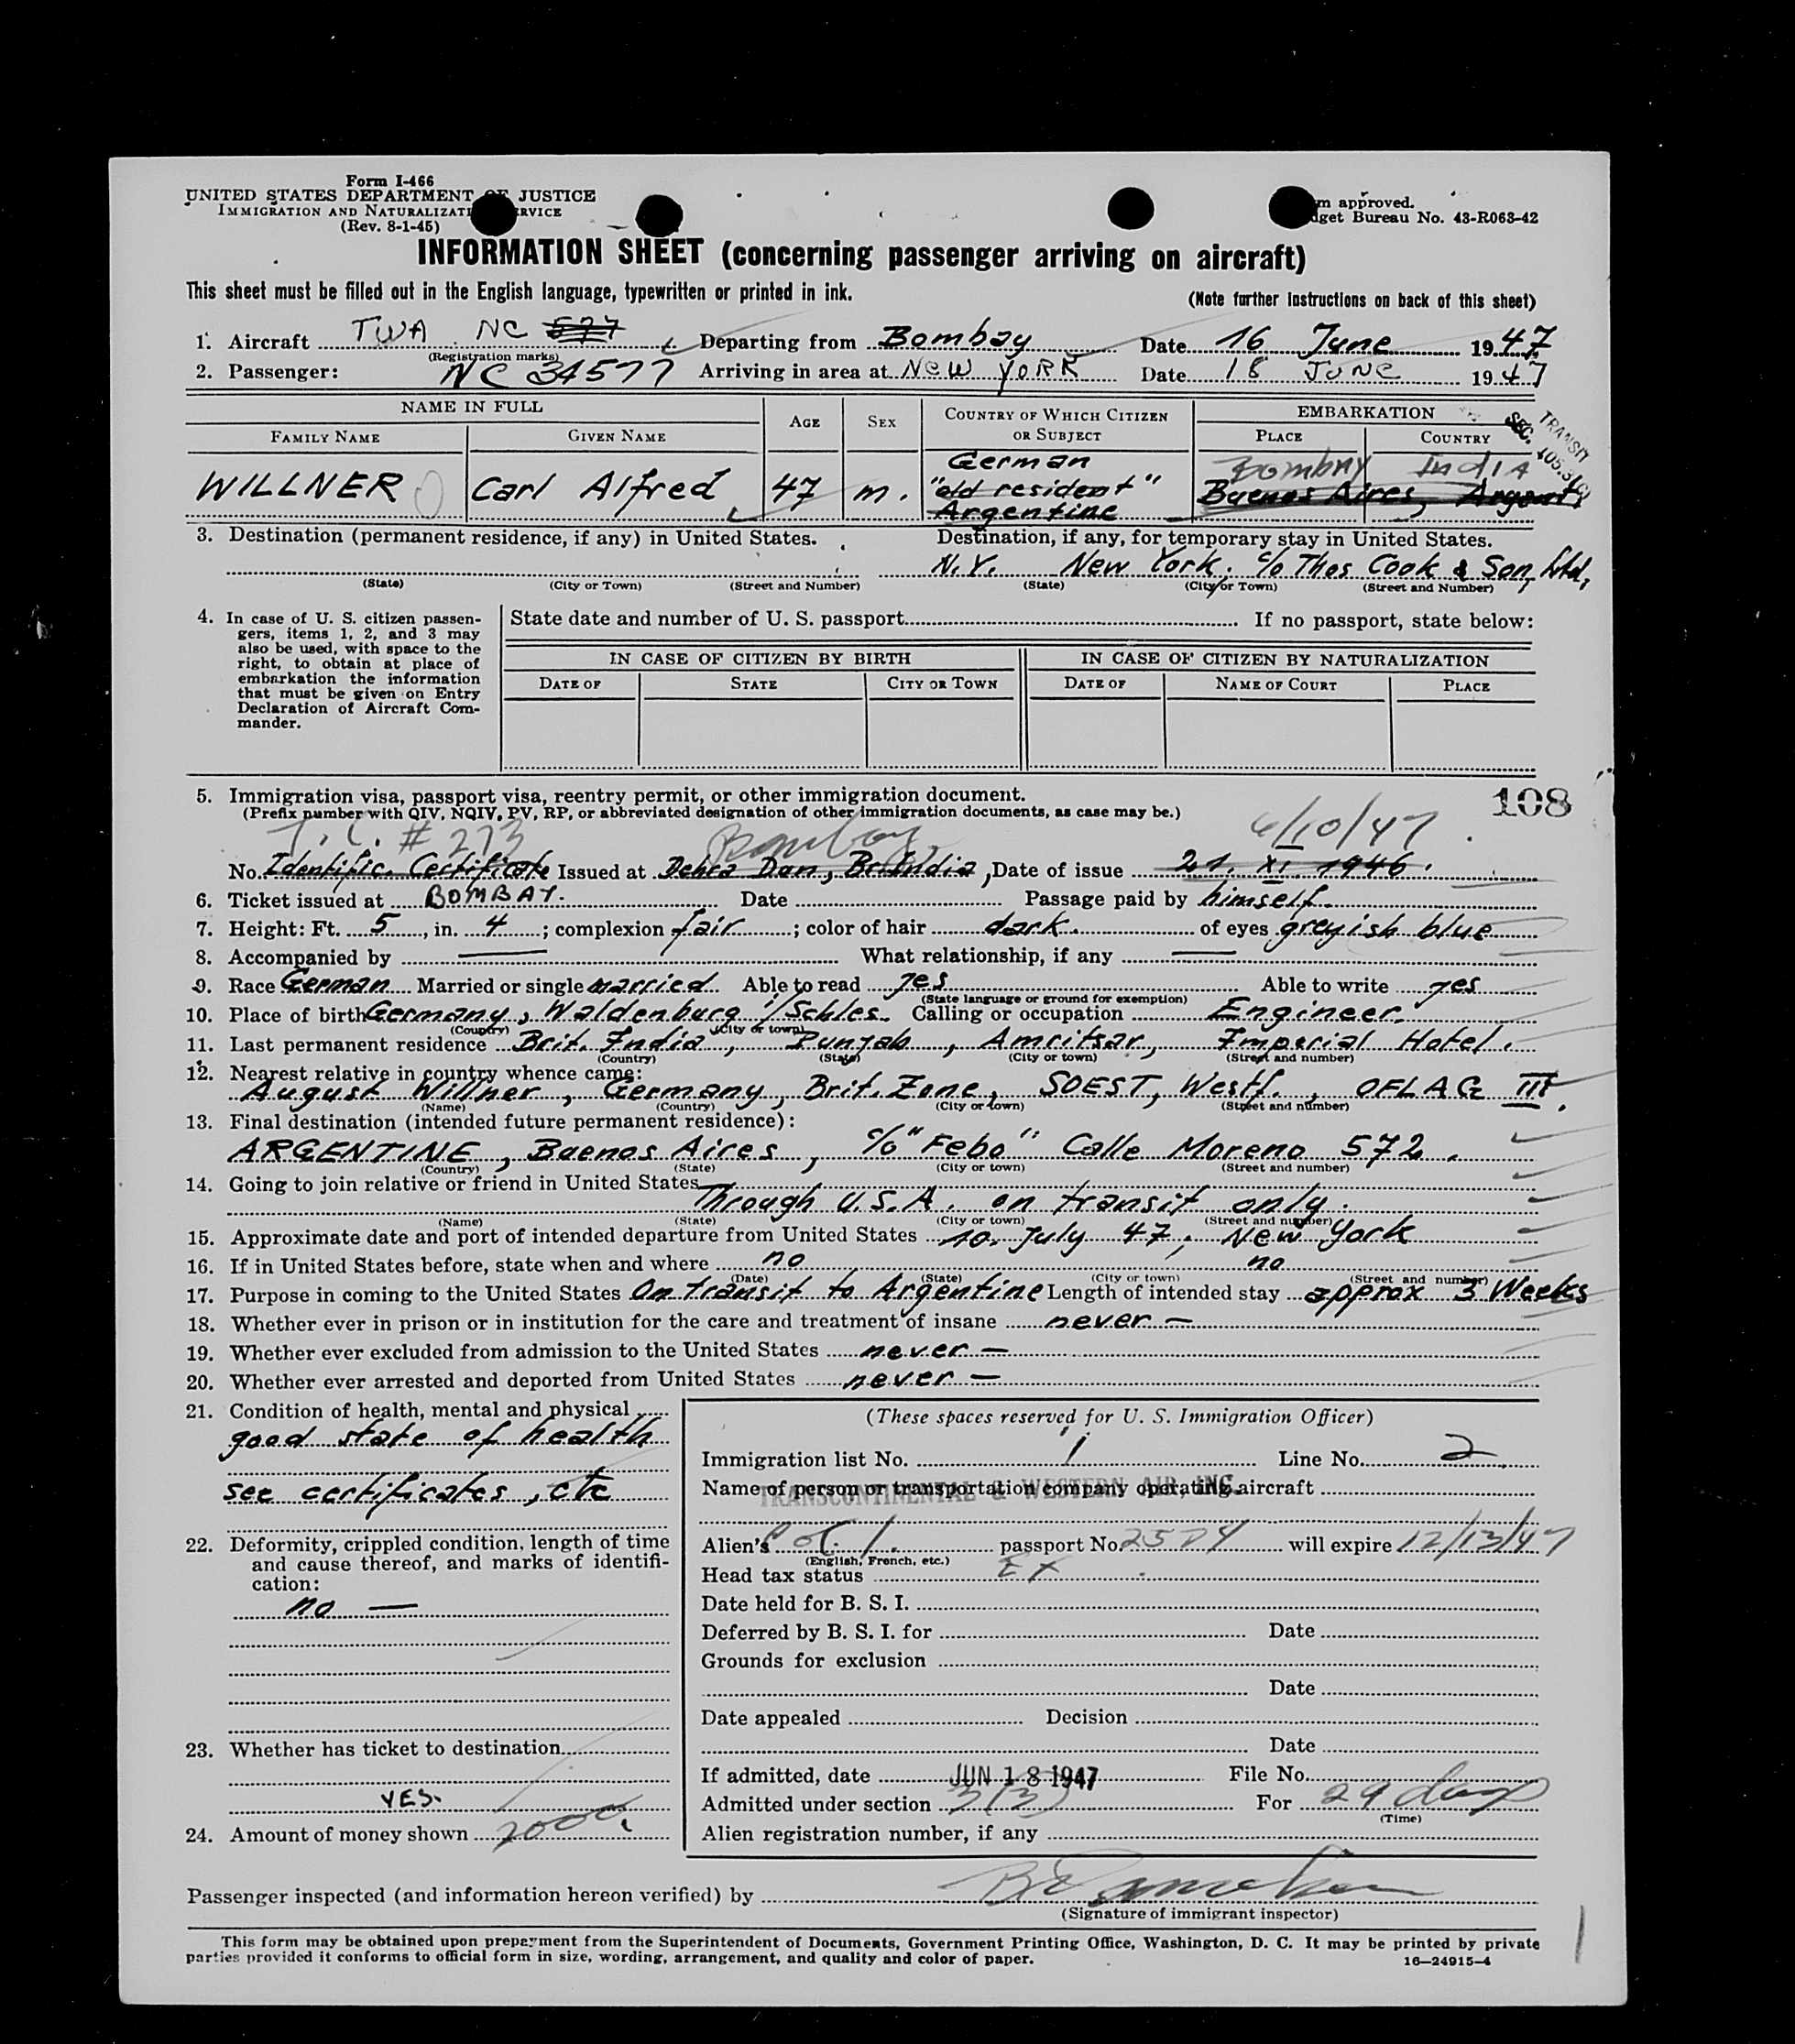 Form I-466
UNITED STATES DEPARTMENT OF JUSTICE
IMMIGRATION AND NATURALIZATI RVICE
(Rev. 8-1-45)
m approved.
dget Bureau No. 43-R063-42
INFORMATION SHEET (concerning passenger arriving on aircraft)
This sheet must be filled out in the English language, typewritten or printed in ink.
(Note further instructions on back of this sheet)
1. Aircraft TWA NC 577 Departing from Bombay Date 16 June 1947
(Registration marks)
2. Passenger: NC 34577 Arriving in area at New York Date 18 June 1947
NAME IN FULL AGE SEX COUNTRY OF WHICH CITIZEN OR SUBJECT EMBARKATION
FAMILY NAME GIVEN NAME PLACE COUNTRY
TRANSIT
SEC.
German Bombay India
WILLNER Carl Alfred 47 m. "old resident" Buenos Aires, Argent
Argentine
3. Destination (permanent residence, if any) in United States. Destination, if any, for temporary stay in United States.
N.Y. New York. c/o Thos Cook & Son, Ltd,
(State) (City or Town) (Street and Number) (State) (City or Town) (Street and Number)
4. In case of U. S. citizen passen-
gers, items 1, 2, and 3 may
also be used, with space to the
right, to obtain at place of
embarkation the information
that must be given on Entry
Declaration of Aircraft Com-
mander.
State date and number of U. S. passport If no passport, state below:
IN CASE OF CITIZEN BY BIRTH IN CASE OF CITIZEN BY NATURALIZATION
DATE OF STATE CITY OR TOWN DATE OF NAME OF COURT PLACE
5. Immigration visa, passport visa, reentry permit, or other immigration document.
108
(Prefix number with QIV, NQIV, PV, RP, or abbreviated designation of other immigration documents, as case may be.)
T.C. # 273 Bombay 6/10/47
No. Identific. Certificate Issued at Dehra Dun, Br. India, Date of issue 21. XI. 1946.
6. Ticket issued at BOMBAY. Date Passage paid by himself.
7. Height: Ft. 5, in. 4; complexion fair; color of hair dark. of eyes greyish blue
8. Accompanied by — What relationship, if any —
9. Race German Married or single married Able to read yes Able to write yes
(State language or ground for exemption)
10. Place of birth Germany, Waldenburg i/Schles. Calling or occupation Engineer.
(Country) (City or town)
11. Last permanent residence Brit. India, Punjab, Amritsar, Imperial Hotel.
(Country) (State) (City or town) (Street and number)
12. Nearest relative in country whence came:
August Willner, Germany, Brit. Zone, SOEST, Westf., OFLAG III.
(Name) (Country) (City or town) (Street and number)
13. Final destination (intended future permanent residence):
ARGENTINE, Buenos Aires, c/o "Febo" Calle Moreno 572.
(Country) (State) (City or town) (Street and number)
14. Going to join relative or friend in United States
Through U.S.A. on transit only.
(Name) (State) (City or town) (Street and number)
15. Approximate date and port of intended departure from United States 10. July 47, New York
16. If in United States before, state when and where no no
(Date) (State) (City or town) (Street and number)
17. Purpose in coming to the United States On transit to Argentine Length of intended stay approx 3 Weeks
18. Whether ever in prison or in institution for the care and treatment of insane never —
19. Whether ever excluded from admission to the United States never —
20. Whether ever arrested and deported from United States never —
21. Condition of health, mental and physical
good state of health
see certificates, etc
22. Deformity, crippled condition, length of time
and cause thereof, and marks of identifi-
cation:
no —
23. Whether has ticket to destination
YES.
24. Amount of money shown 2000
(These spaces reserved for U. S. Immigration Officer)
Immigration list No. 1 Line No. 2
Name of person or transportation company operating aircraft
TRANSCONTINENTAL & WESTERN AIR, INC.
Alien's passport No. 2574 will expire 12/13/47
(English, French, etc.)
Head tax status EX
Date held for B. S. I.
Deferred by B. S. I. for Date
Grounds for exclusion
Date
Date appealed Decision
Date
If admitted, date JUN 18 1947 File No.
Admitted under section 3(3) For 29 days
(Time)
Alien registration number, if any
Passenger inspected (and information hereon verified) by
(Signature of immigrant inspector)
This form may be obtained upon prepayment from the Superintendent of Documents, Government Printing Office, Washington, D. C. It may be printed by private
parties provided it conforms to official form in size, wording, arrangement, and quality and color of paper.
16—24915-4